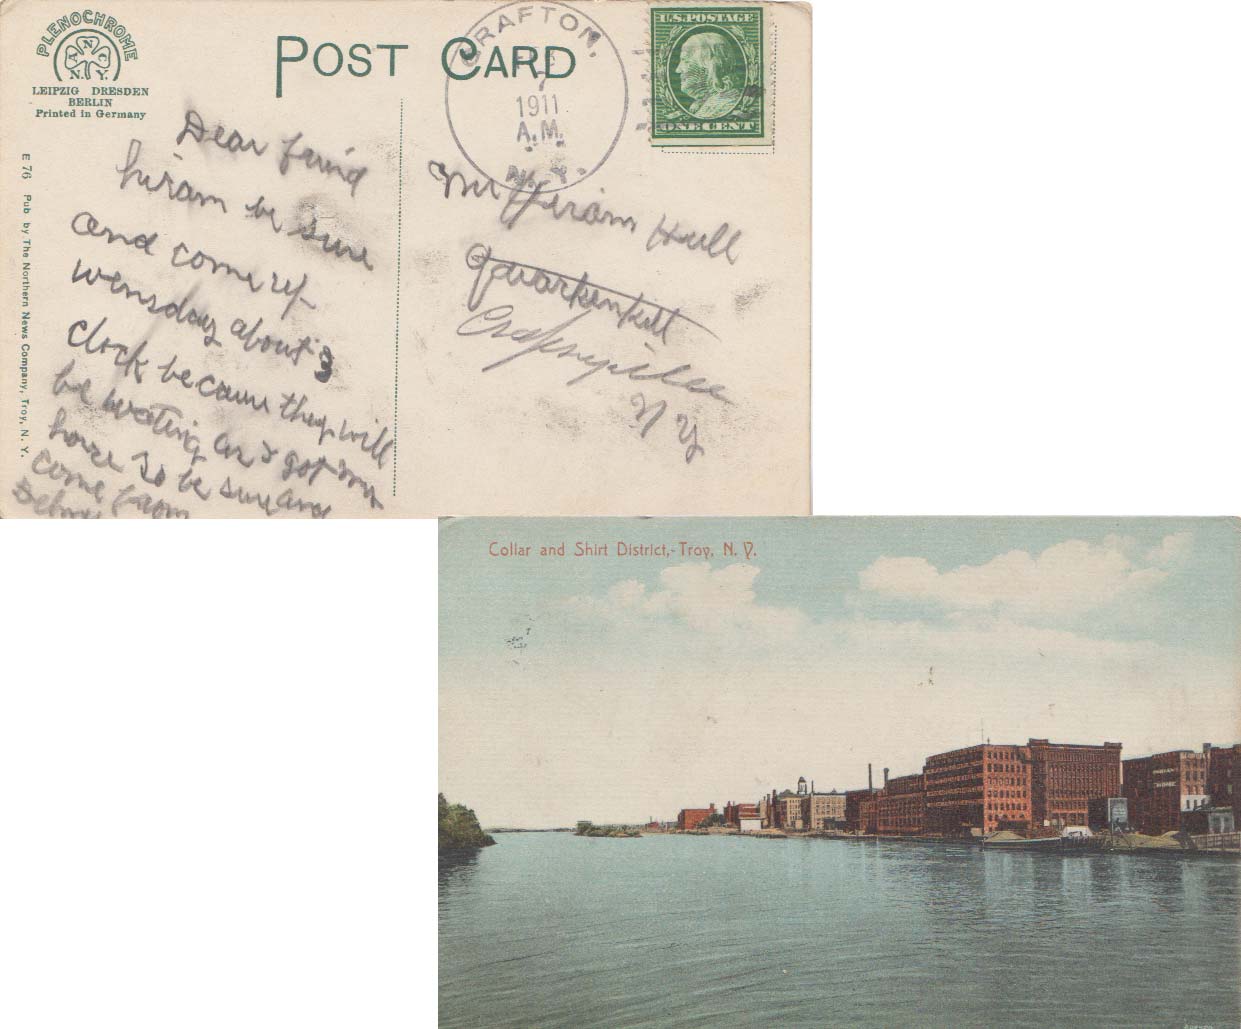 PLENOCHROME
A N C
N.Y.
LEIPZIG DRESDEN
BERLIN
Printed in Germany
POST CARD
GRAFTON,
7
1911
A.M.
N.Y.
U.S. POSTAGE
ONE CENT
E 76 Pub by The Northern News Company, Troy, N. Y.
Dear frind
hiram be sure
and come up
wensday about 3
clock because they will
be wating as I got my
horse so be sure and
come from
Mr Hiram Hull
Quarkenkill
Cropseyville
N Y
Collar and Shirt District,- Troy, N. Y.